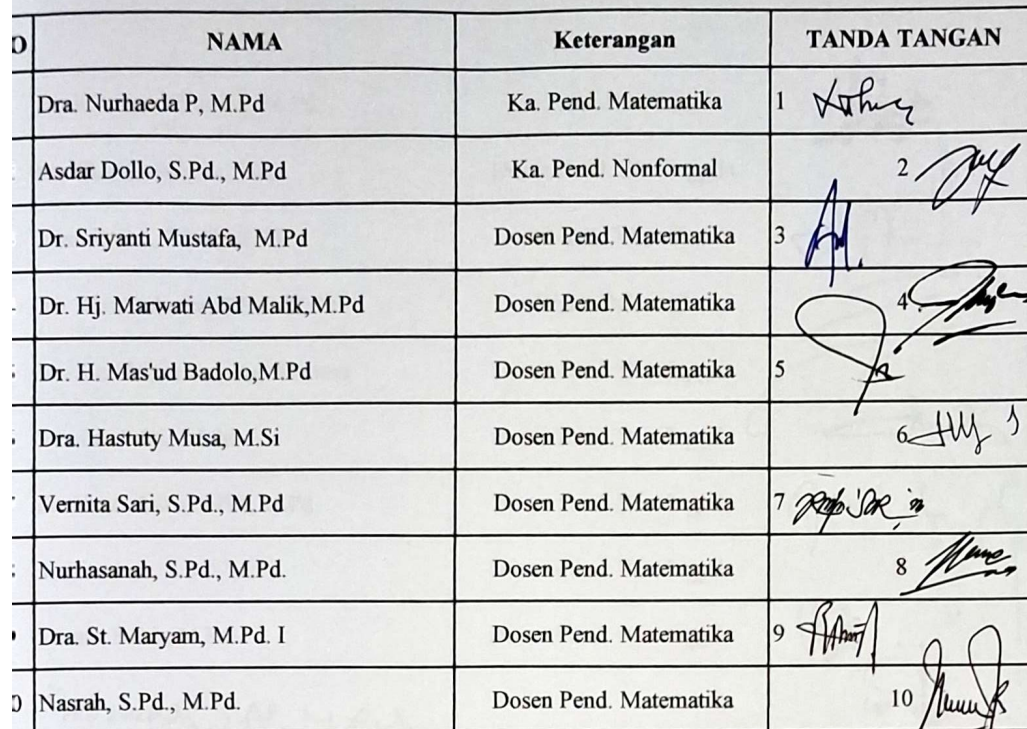 O NAMA Keterangan TANDA TANGAN
Dra. Nurhaeda P, M.Pd Ka. Pend. Matematika 1
Asdar Dollo, S.Pd., M.Pd Ka. Pend. Nonformal 2
Dr. Sriyanti Mustafa, M.Pd Dosen Pend. Matematika 3
Dr. Hj. Marwati Abd Malik,M.Pd Dosen Pend. Matematika 4
Dr. H. Mas'ud Badolo,M.Pd Dosen Pend. Matematika 5
Dra. Hastuty Musa, M.Si Dosen Pend. Matematika 6
Vernita Sari, S.Pd., M.Pd Dosen Pend. Matematika 7
Nurhasanah, S.Pd., M.Pd. Dosen Pend. Matematika 8
Dra. St. Maryam, M.Pd. I Dosen Pend. Matematika 9
0 Nasrah, S.Pd., M.Pd. Dosen Pend. Matematika 10